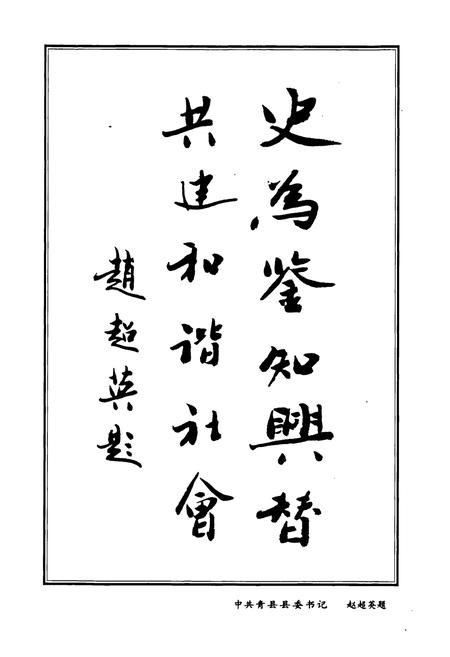 史為鉴知興替
共建和谐社會
趙超英題
中共青县县委书记　赵超英题